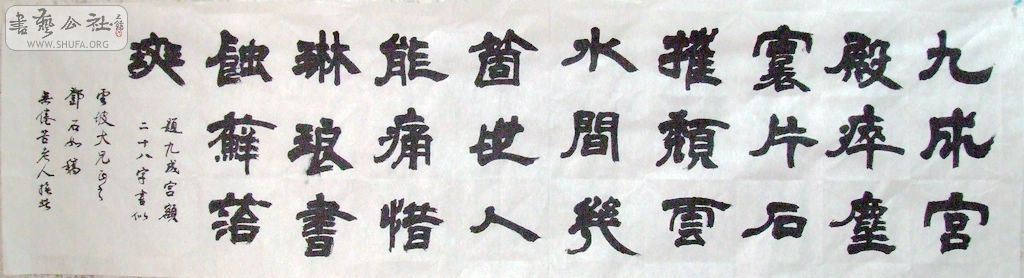 九成宮
殿瘁塵
寰片石
摧頹雲
水間幾
箇世人
能痛惜
琳琅書
蝕蘚菭
題九成宮額
二十八字書似
雲坡大兄正之
鄧石如稿
老人
書藝公社
WWW.SHUFA.ORG